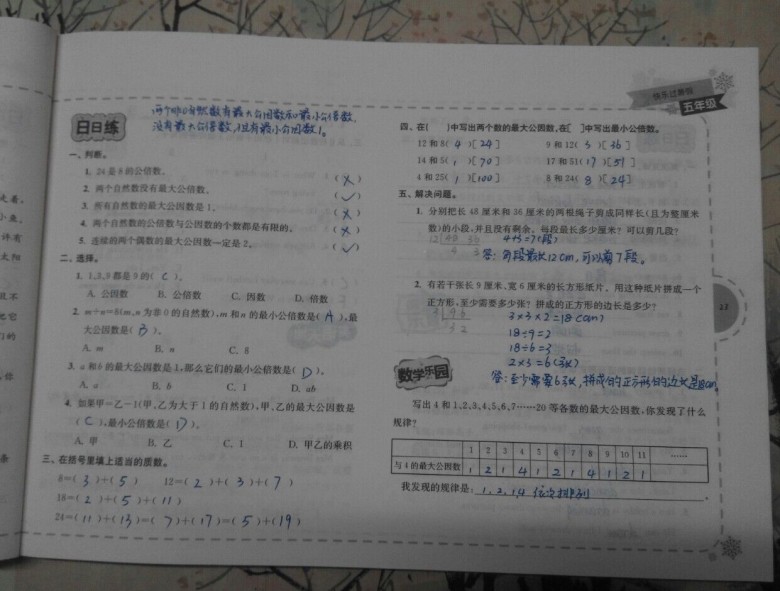 快乐过暑假
五年级
日日练
两个非0自然数有最大公因数和最小公倍数,
没有最大公倍数,且有最小公因数1。
一、判断。
1. 24是8的公倍数。 (×)
2. 两个自然数没有最大公倍数。 (✓)
3. 所有自然数的最大公因数是1。 (×)
4. 两个自然数的公倍数与公因数的个数都是有限的。 (×)
5. 连续的两个偶数的最大公因数一定是2。 (✓)
二、选择。
1. 1,3,9都是9的( C )。
A. 公因数 B. 公倍数 C. 因数 D. 倍数
2. m÷n=8(m,n为非0的自然数),m和n的最小公倍数是( A ),最
大公因数是( B )。
A. m B. n C. 8
3. a和b的最大公因数是1,那么它们的最小公倍数是( D )。
A. a B. b C. 1 D. ab
4. 如果甲=乙-1(甲、乙为大于1的自然数),甲、乙的最大公因数是
( C ),最小公倍数是( D )。
A. 甲 B. 乙 C. 1 D. 甲乙的乘积
三、在括号里填上适当的质数。
8=( 3 )+( 5 ) 12=( 2 )+( 3 )+( 7 )
18=( 2 )+( 5 )+( 11 )
24=( 11 )+( 13 )=( 7 )+( 17 )=( 5 )+( 19 )
四、在( )中写出两个数的最大公因数,在[ ]中写出最小公倍数。
12和8( 4 )[ 24 ] 9和12( 3 )[ 36 ]
14和5( 1 )[ 70 ] 17和51( 17 )[ 51 ]
4和25( 1 )[ 100 ] 8和24( 8 )[ 24 ]
五、解决问题。
1. 分别把长48厘米和36厘米的两根绳子剪成同样长(且为整厘米
数)的小段,并且没有剩余。每段最长多少厘米?可以剪几段?
12 48 36 4+3=7(段)
4 3 答:每段最长12cm,可以剪7段。
2. 有若干张长9厘米、宽6厘米的长方形纸片。用这种纸片拼成一个
正方形,至少需要多少张?拼成的正方形的边长是多少?
3 9 6 3×3×2=18(cm)
3 2 18÷9=2
18÷6=3
2×3=6(张)
答:至少需要6张,拼成的正方形的边长是18cm
23
数学乐园
写出4和1,2,3,4,5,6,7……20等各数的最大公因数,你发现了什么
规律?
1 2 3 4 5 6 7 8 9 10 11 ……
与4的最大公因数 1 2 1 4 1 2 1 4 1 2 1
我发现的规律是:1.2.1.4 依次排列。